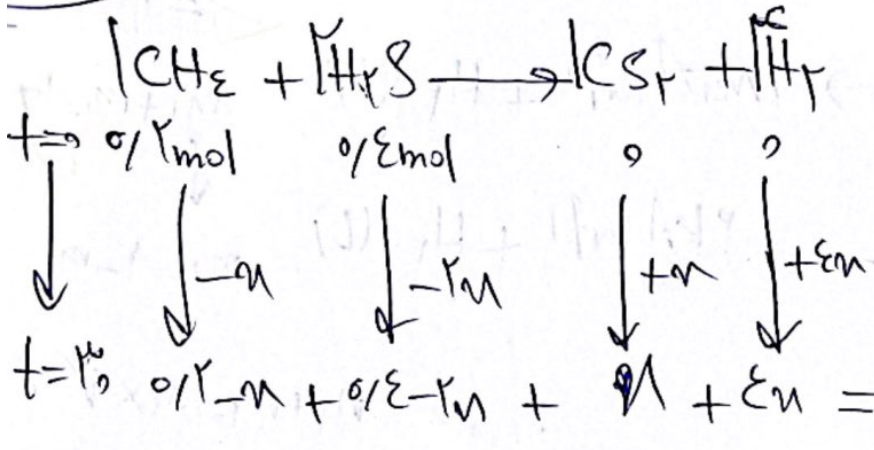 ۱CH۴ + ۲H۲S → ۱CS۲ + ۴H۲
t=۰ ۰/۲mol ۰/۴mol ۰ ۰
-x -۲x +x +۴x
t=۳۰ ۰/۲-x + ۰/۴-۲x + x + ۴x =